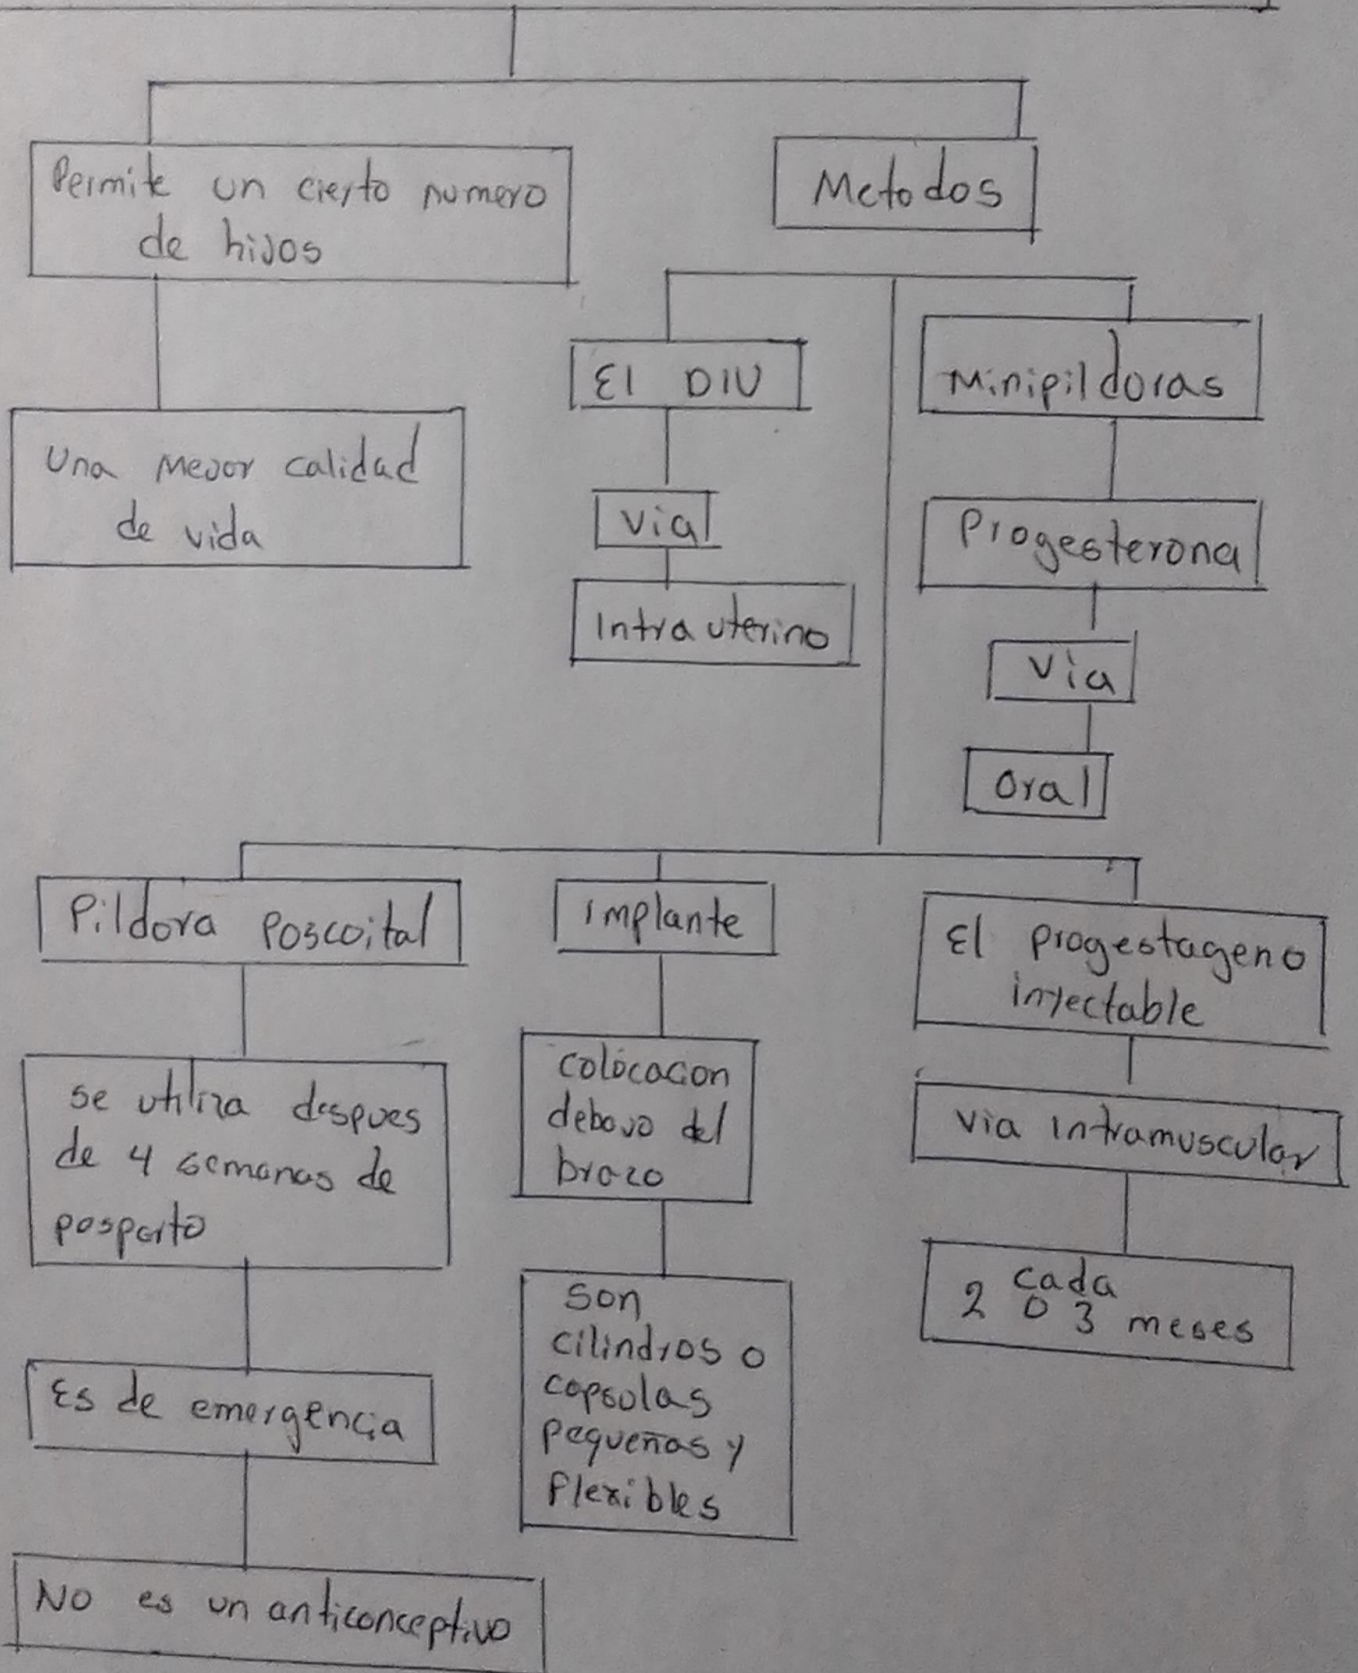 Permite un cierto numero
de hijos
Metodos
Una Mejor calidad
de vida
El DIU
Via
Intrauterino
Minipildoras
Progesterona
Via
Oral
Pildora Poscoital
se utiliza despues
de 4 semanas de
posparto
Es de emergencia
No es un anticonceptivo
implante
colocacion
debajo del
brazo
Son
cilindros o
capsulas
pequeñas y
flexibles
El progestageno
inyectable
Via intramuscular
cada
2 o 3 meses